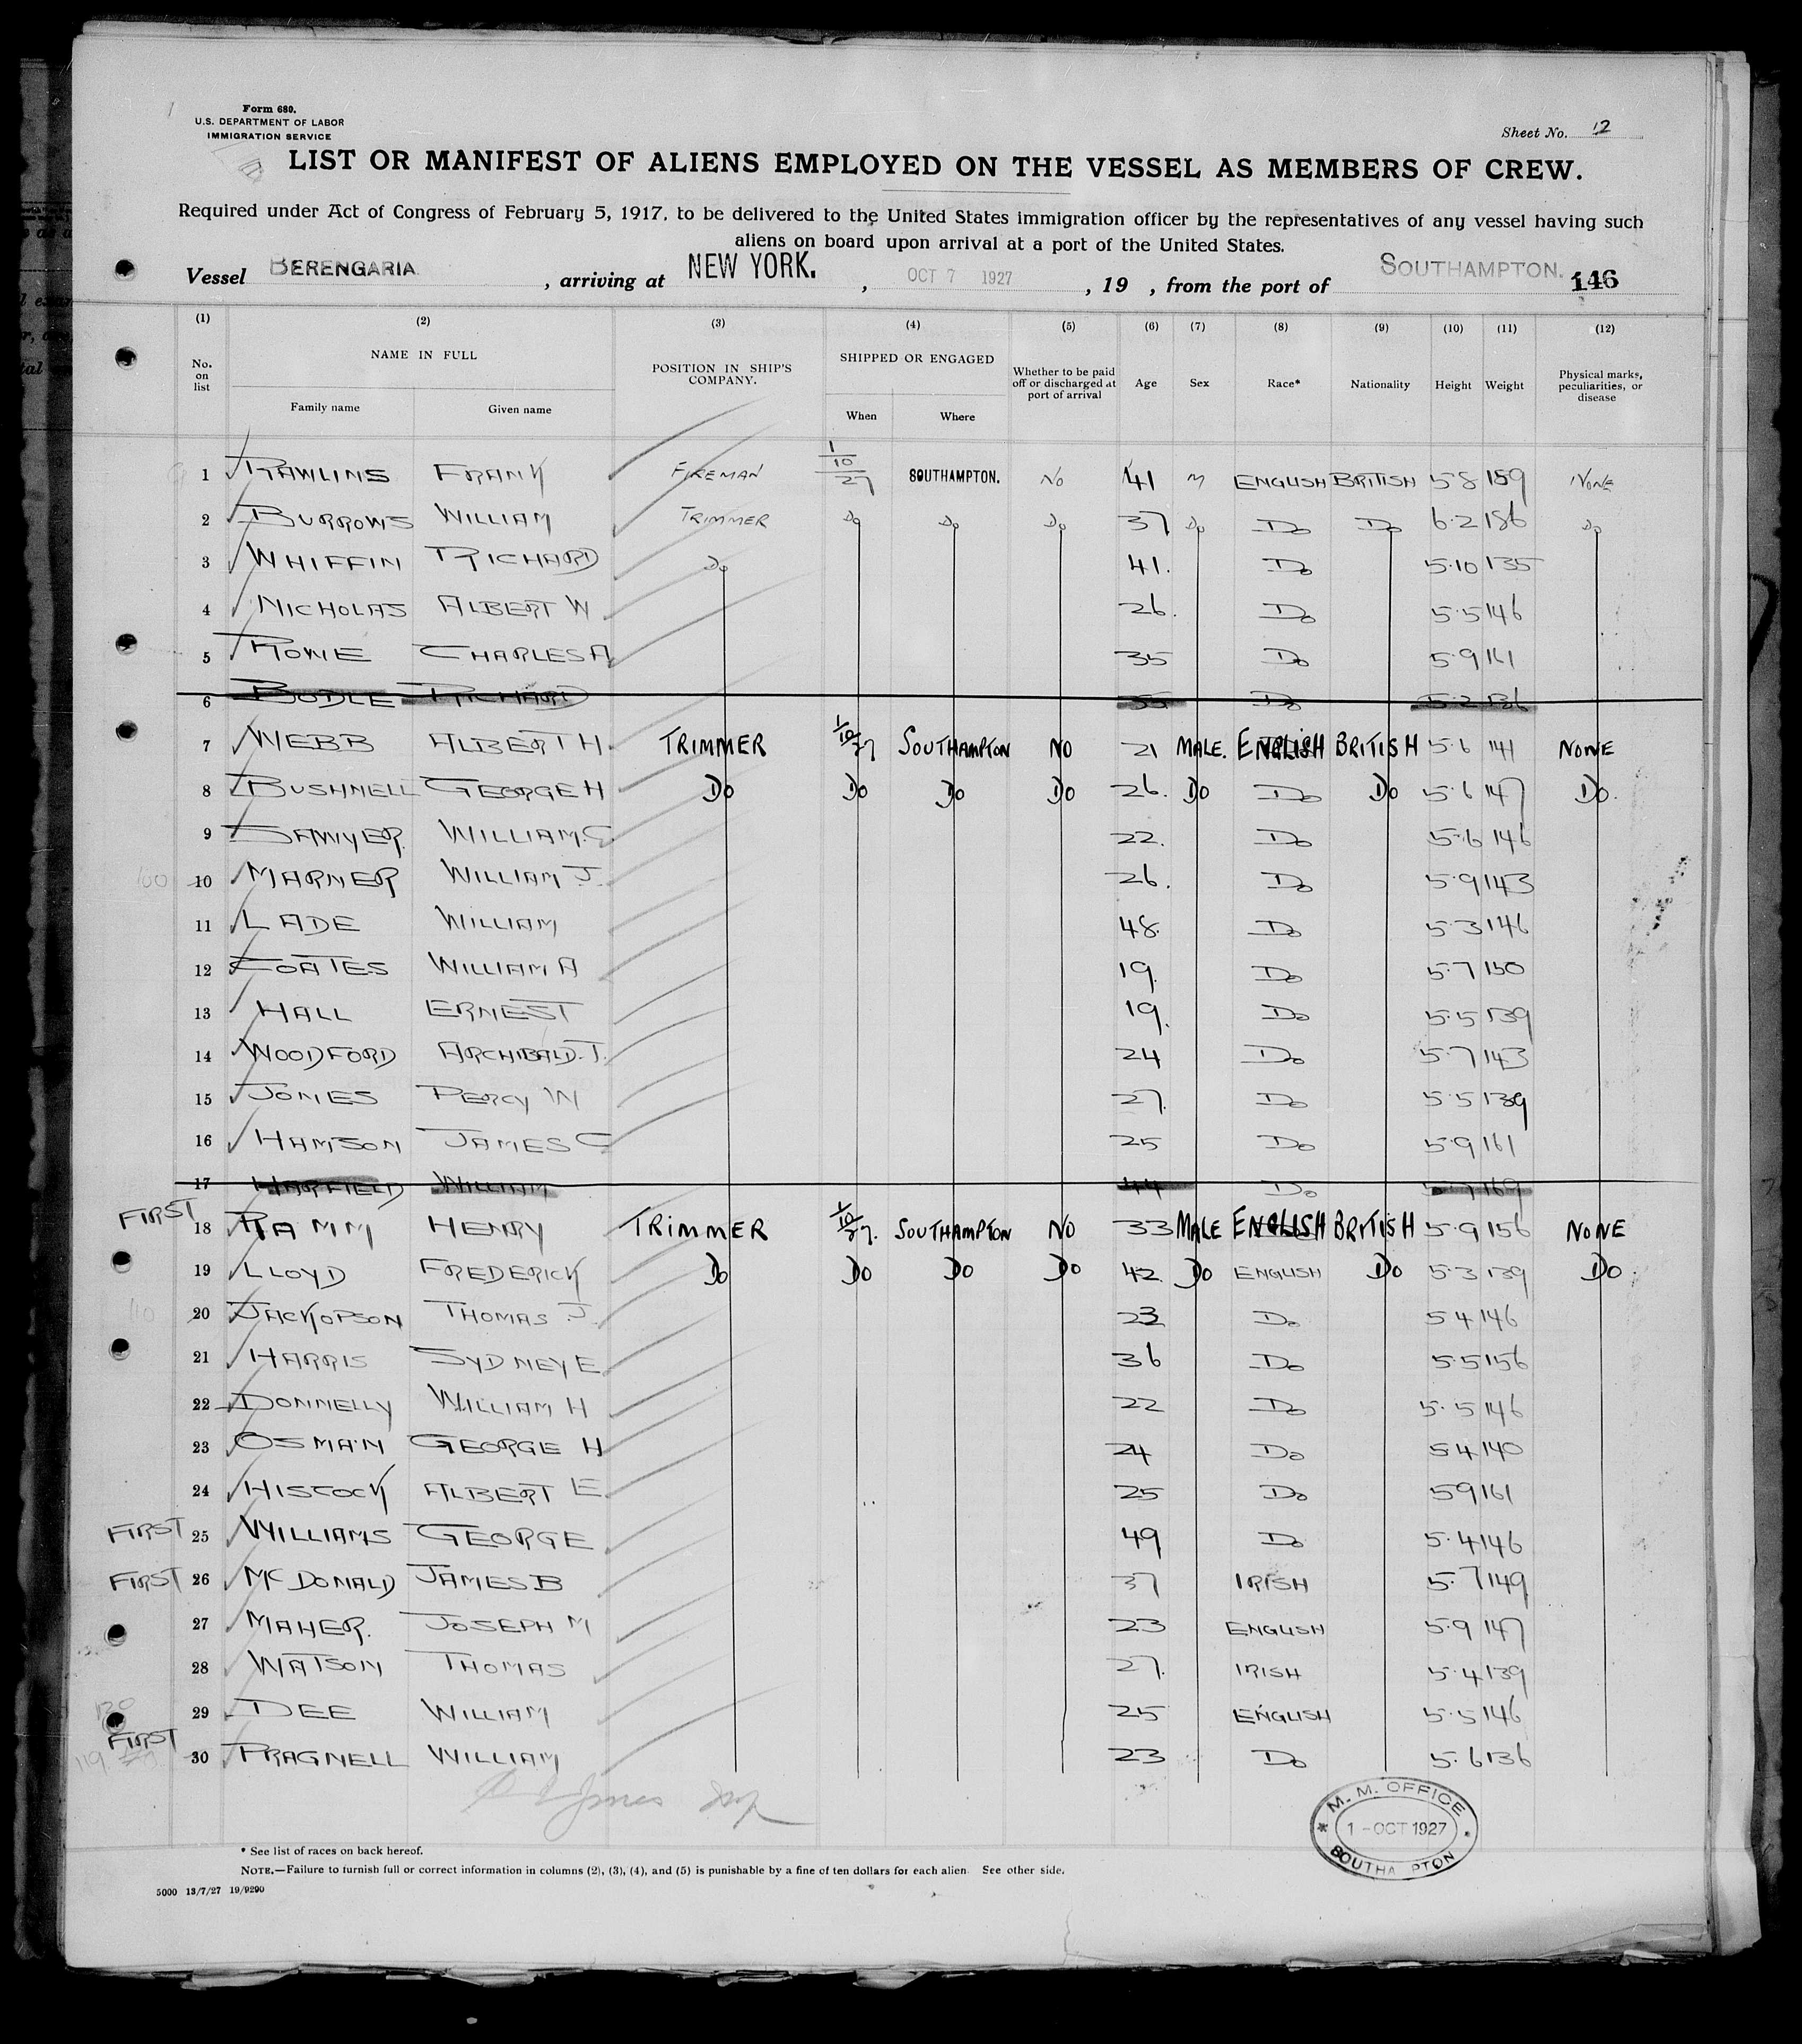 Form 680.
U.S. DEPARTMENT OF LABOR
IMMIGRATION SERVICE
Sheet No. 12
LIST OR MANIFEST OF ALIENS EMPLOYED ON THE VESSEL AS MEMBERS OF CREW.
Required under Act of Congress of February 5, 1917, to be delivered to the United States immigration officer by the representatives of any vessel having such
aliens on board upon arrival at a port of the United States.
Vessel BERENGARIA, arriving at NEW YORK., OCT 7 1927, 19 , from the port of SOUTHAMPTON. 146
(1) (2) (3) (4) (5) (6) (7) (8) (9) (10) (11) (12)
No. on list NAME IN FULL Family name Given name POSITION IN SHIP'S COMPANY. SHIPPED OR ENGAGED When Where Whether to be paid off or discharged at port of arrival Age Sex Race* Nationality Height Weight Physical marks, peculiarities, or disease
1 RAWLINS FRANK FIREMAN 1/10/27 SOUTHAMPTON. NO 41 M ENGLISH BRITISH 5.8 159 NONE
2 BURROWS WILLIAM TRIMMER Do Do Do 37 Do Do Do 6.2 186 Do
3 WHIFFIN RICHARD Do 41. Do 5.10 135
4 NICHOLAS ALBERT W 26. Do 5.5 146
5 ROWE CHARLES A 35 Do 5.9 161
6 BODLE RICHARD 35 Do 5.2 136
7 WEBB ALBERT H. TRIMMER 1/10/27 SOUTHAMPTON NO 21 MALE. ENGLISH BRITISH 5.6 141 NONE
8 BUSHNELL GEORGE H Do Do Do Do 26. Do Do Do 5.6 147 Do.
9 SAWYER. WILLIAM. C 22. Do 5.6 146
10 MARNER WILLIAM J. 26. Do 5.9 143
11 LADE WILLIAM 48. Do 5.3 146
12 COATES WILLIAM A 19. Do 5.7 150
13 HALL ERNEST 19. Do 5.5 139
14 WOODFORD ARCHIBALD. J. 24 Do 5.7 143
15 JONES PERCY W 27. Do 5.5 139
16 HAMSON JAMES C 25 Do 5.9 161
17 HARFIELD WILLIAM 44 Do 5.7 169
FIRST 18 RAMM HENRY TRIMMER 1/10/27. SOUTHAMPTON NO 33 MALE ENGLISH BRITISH 5.9 156 NONE
19 LLOYD FREDERICK Do Do Do Do 42 Do ENGLISH Do 5.3 139 Do.
20 JACKOPSON THOMAS J. 23 Do 5.4 146
21 HARRIS SYDNEY E. 36 Do 5.5 156
22 DONNELLY WILLIAM H 22 Do 5.5 146
23 OSMAN GEORGE H 24 Do 5.4 140
24 HISCOCK ALBERT E. 25 Do 59 161
FIRST 25 WILLIAMS GEORGE 49 Do 5.4 146
FIRST 26 MC DONALD JAMES B 37 IRISH 5.7 149
27 MAHER. JOSEPH M 23 ENGLISH 5.9 147
28 WATSON THOMAS 27. IRISH 5.4 139
29 DEE WILLIAM 25 ENGLISH 5.5 146
FIRST 30 PRAGNELL WILLIAM 23 Do 5.6 136
M. M. OFFICE
1 - OCT 1927
SOUTHA PTON
* See list of races on back hereof.
NOTE.—Failure to furnish full or correct information in columns (2), (3), (4), and (5) is punishable by a fine of ten dollars for each alien. See other side.
5000 13/7/27 19/9290